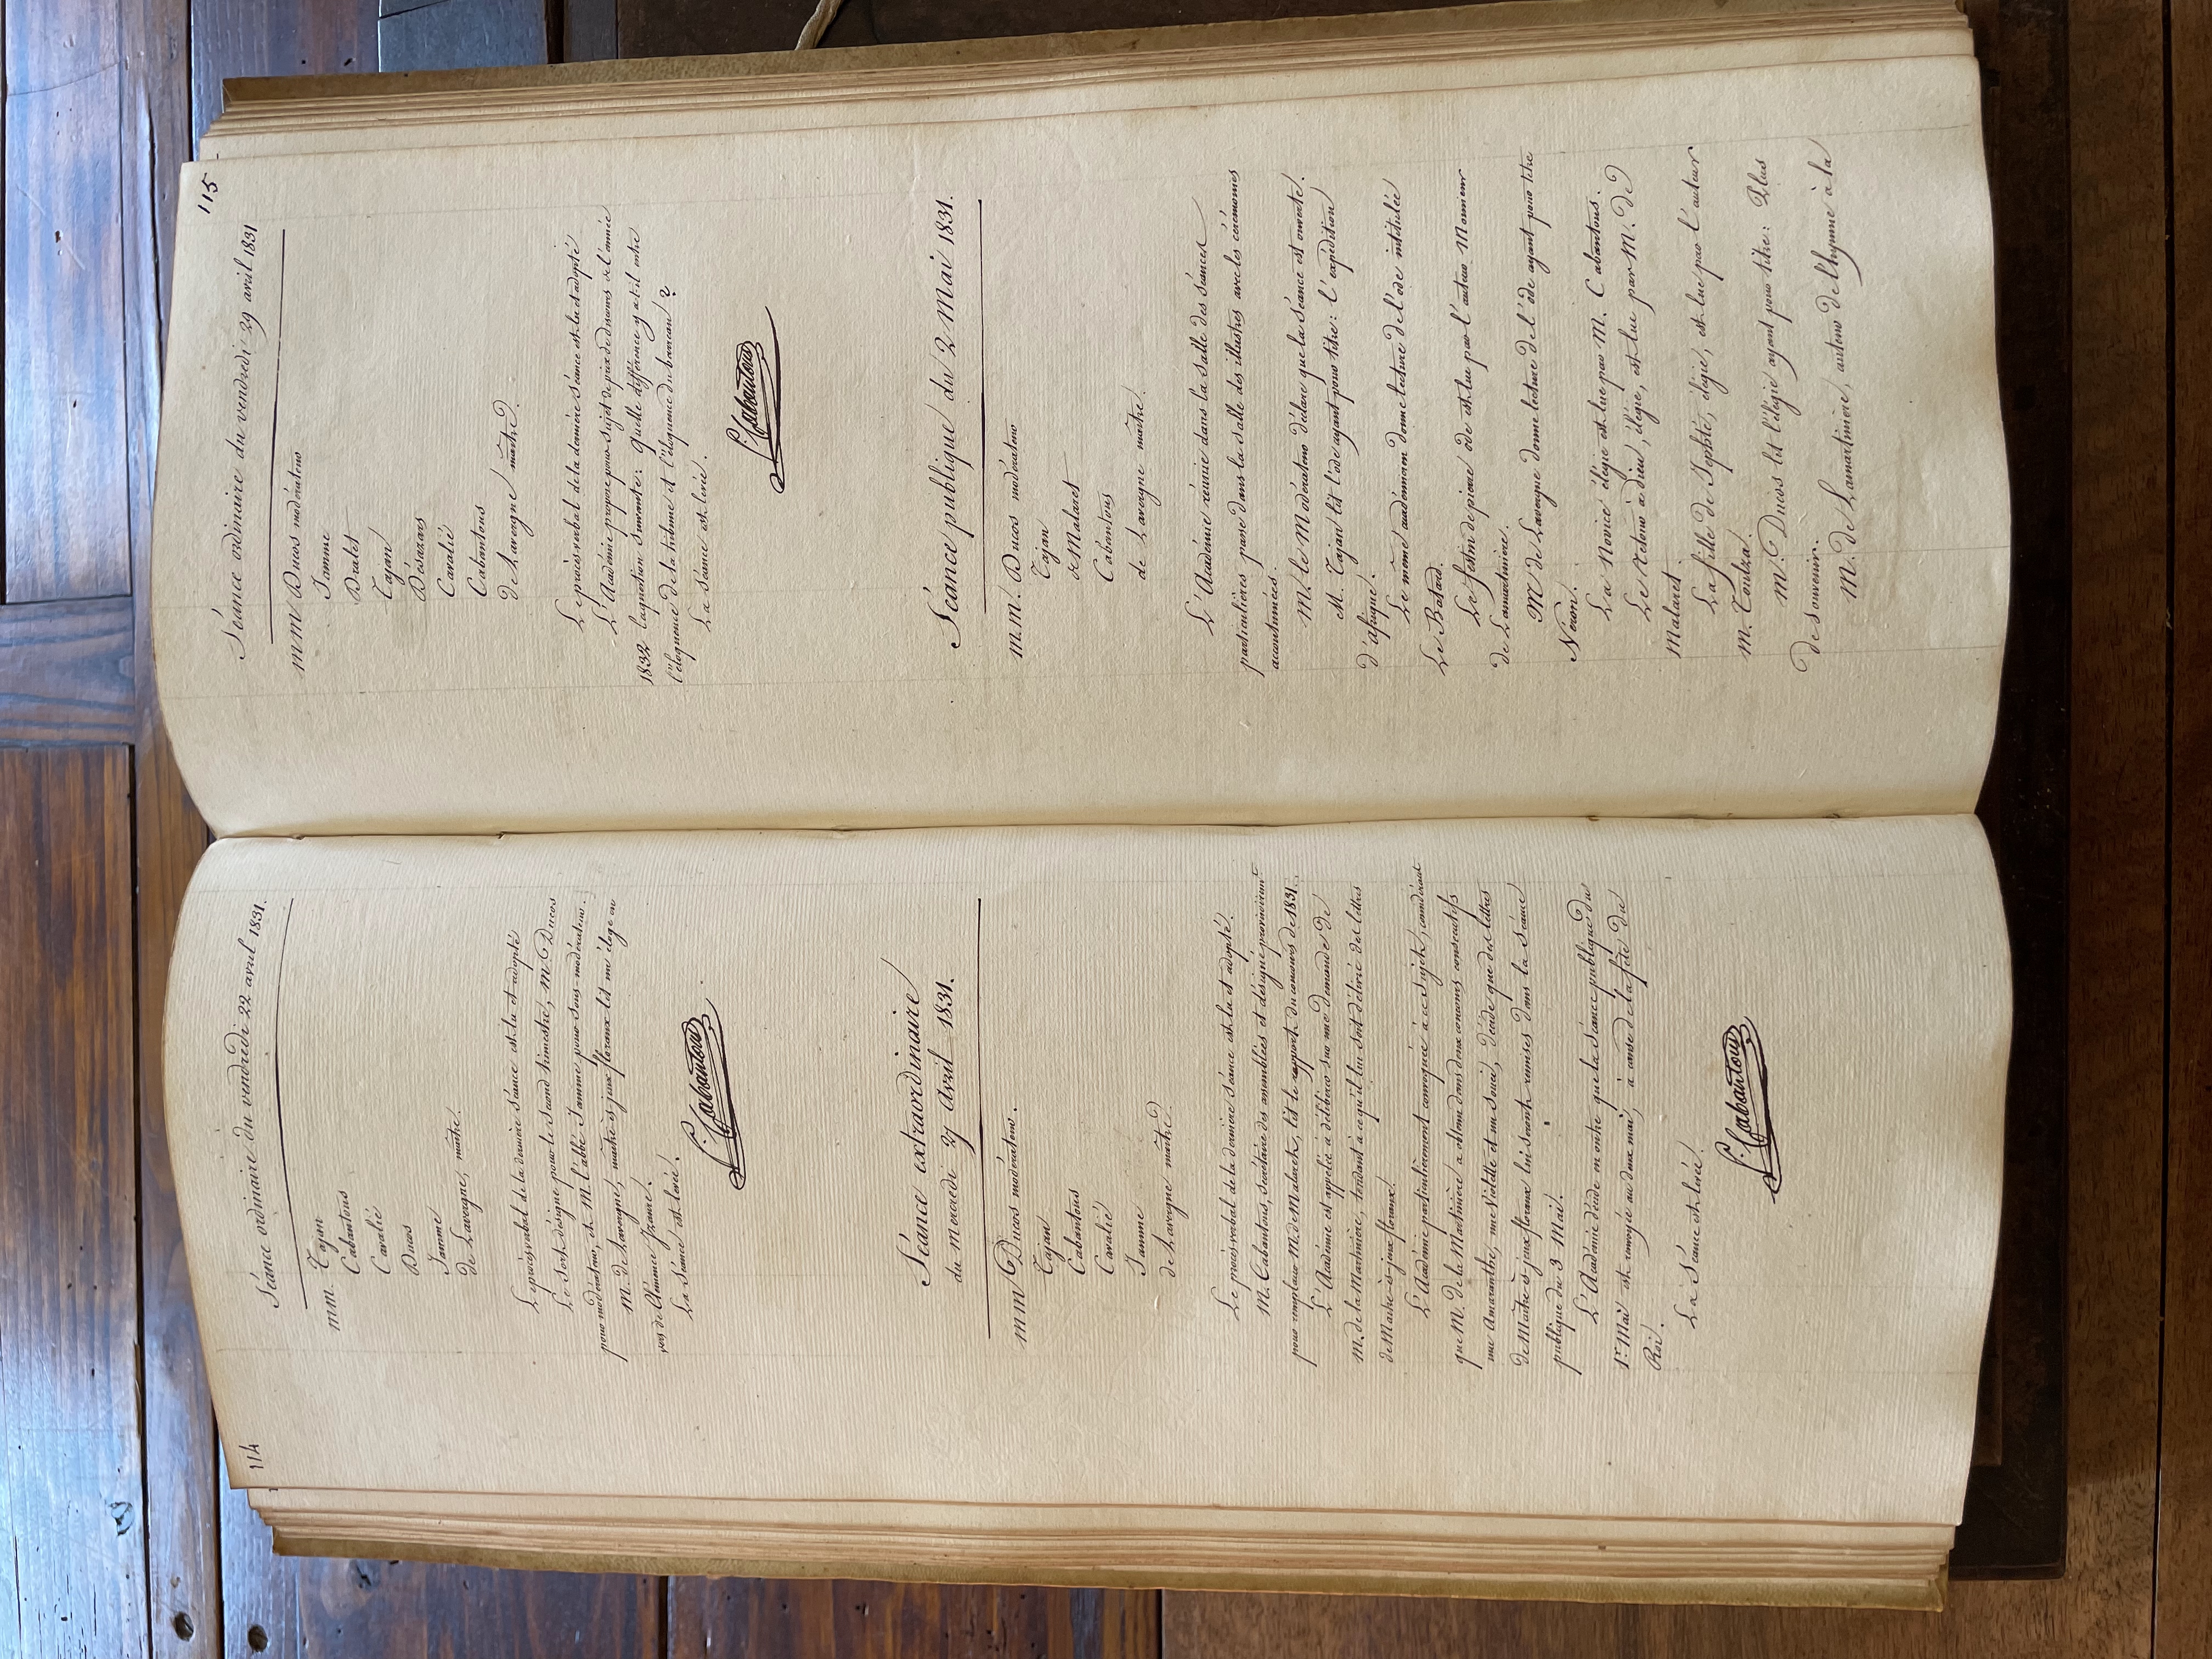 114
Séance ordinaire du vendredi 22 avril 1831.
mm. Tajan
Cabantous
Cavalié
Ducos
Jamme
de Lavergne, maître.
Le procès verbal de la dernière séance est lu et adopté
Le sort désigne pour le second trimestre, M. Ducos
pour modérateur, et M. l'abbé Jamme pour sous-modérateur.
M. de Lavergne, maître ès jeux floraux lit un éloge en
vers de Clémence Izaure.
La Séance est levée.
S. Cabantous
Séance extraordinaire
du mercredi 27 avril 1831.
mm Ducos modérateur.
Tajan
Cabantous
Cavalié
Jamme
de Lavergne maître
Le procès verbal de la dernière séance est lu et adopté.
M. Cabantous, secrétaire des assemblées et désigné provisoirement
pour remplacer M. de Malaret, lit le rapport du concours de 1831.
L'Académie est appelée à délibérer sur une demande de
M. de la Martinière, tendant à ce qu'il lui soit délivré des lettres
de Maître-ès-jeux floraux.
L'Académie particulièrement convoquée à ce sujet, considérant
que M. de la Martinière a obtenu dans deux concours consécutifs
une Amaranthe, une Violette et un Souci, décide que des lettres
de Maître ès jeux floraux lui seront remises dans la séance
publique du 3 Mai.
L'Académie décide en outre que la séance publique du
1er Mai est renvoyée au deux mai, à cause de la fête du
Roi.
La Séance est levée.
S. Cabantous
115
Séance ordinaire du vendredi 29 avril 1831
mm Ducos modérateur
Jamme
Dralet
Tajan
Désazars
Cavalié
Cabantous
de Lavergne maître.
Le procès verbal de la dernière séance est lu et adopté
L'Académie propose pour sujet de prix de discours de l'année
1832 la question suivante: Quelle différence y a-t-il entre
l'éloquence de la tribune et l'éloquence du barreau?
La séance est levée.
S. Cabantous
Séance publique du 2 Mai 1831.
m.m. Ducos modérateur
Tajan
de Malaret
Cabantous
de Lavergne maître.
L'Académie réunie dans la salle des séances
particulières passe dans la salle des illustres avec les cérémonies
accoutumées.
M. le Modérateur déclare que la séance est ouverte.
M. Tajan lit l'ode ayant pour titre: l'expédition
d'afrique.
Le même académicien donne lecture de l'ode intitulée
Le Batard.
Le festin de pierre ode est lue par l'auteur Monsieur
de Lamartinière.
M de Lavergne donne lecture de l'ode ayant pour titre
Néron.
La Novice élégie est lue par M. Cabantous.
Le retour à dieu, élégie, est lue par M. de
Malaret.
La fille de Jephté, élégie, est lue par l'auteur
M. Toulza.
M. Ducos lit l'élégie ayant pour titre: Plus
de souvenir.
M. de Lamartinière, auteur de l'hymne à la